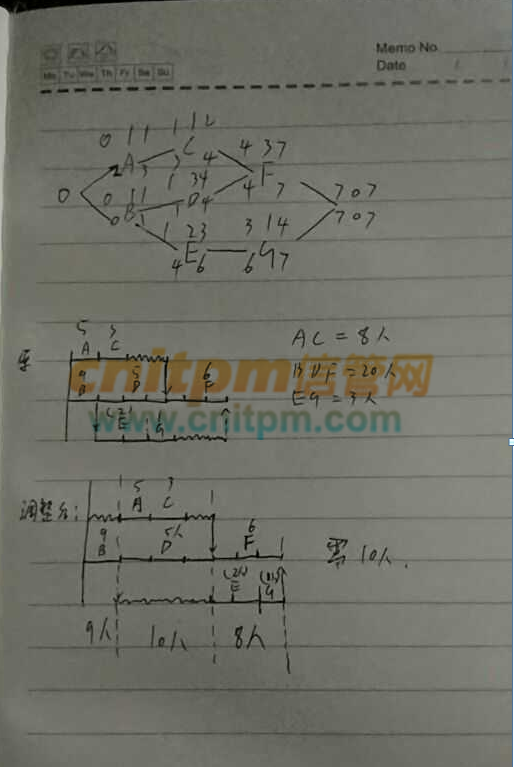 Memo No
Date
Mo Tu We Th Fr Sa Su
0 1 1 1 1 2 4 3 7
A C F
2 3 3 4 4 7
0 0 1 1 1 3 4 7 0 7
B D 7 0 7
0 1 1 4
1 2 3 3 1 4
E G
4 6 6 7
5 3
A C
AC = 8人
9 5 6
B D F
BDF = 20人
E G
EG = 3人
cnitpm信管网
www.cnitpm.com
5 3
调整后: A C
9 5人 6
B D F
需10人.
(2人) (1人)
E G
9人 10人 8人